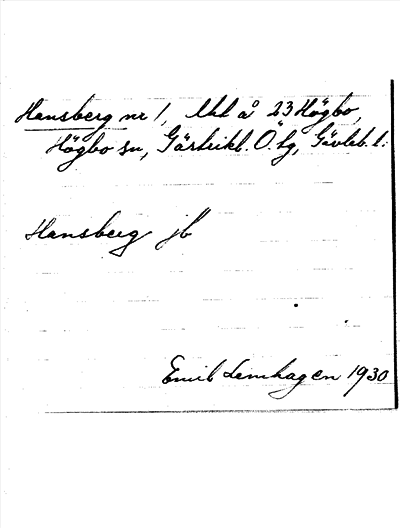 Hansberg nr 1, Utl å 23 Högbo,
Högbo sn, Gästrikl. Ö. tg, Gävleb. l.
Hansberg jb
Emil Lemhagen 1930